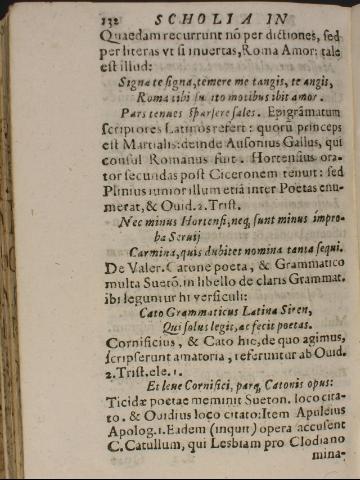 132 SCHOLIA IN
Quaedam recurrunt nõ per dictiones, sed
per literas vt si inuertas, Roma Amor: tale
est illud:
Signa te signa, temere me tangis, te angis,
Roma tibi su ito motibus ibit amor.
Pars tenues sparsere sales. Epigrãmatum
scriptores Latinos refert: quorũ princeps
est Martialis: deinde Ausonius Gallus, qui
consul Romanus fuit. Hortensius ora-
tor secundas post Ciceronem tenuit: sed
Plinius iunior illum etiã inter Poetas enu-
merat, & Ouid. 2. Trist.
Nec minus Hortensi, neq; sunt minus impro-
ba Seruij
Carmina, quis dubitet nomina tanta sequi.
De Valer. Catone poeta, & Grammatico
multa Suetõ. in libello de claris Grammat.
ibi leguntur hi versiculi:
Cato Grammaticus Latina Siren,
Qui solus legit, ac fecit poetas.
Cornificius, & Cato hic, de quo agimus,
scripserunt amatoria, referuntur ab Ouid.
2. Trist. ele. 1.
Et leue Cornifici, parq; Catonis opus:
Ticidæ poetae meminit Sueton. loco cita-
to. & Ouidius loco citato: Item Apuleius
Apolog. 1. Eadem (inquit) opera accusent
C. Catullum, qui Lesbiam pro Clodia no
mina-